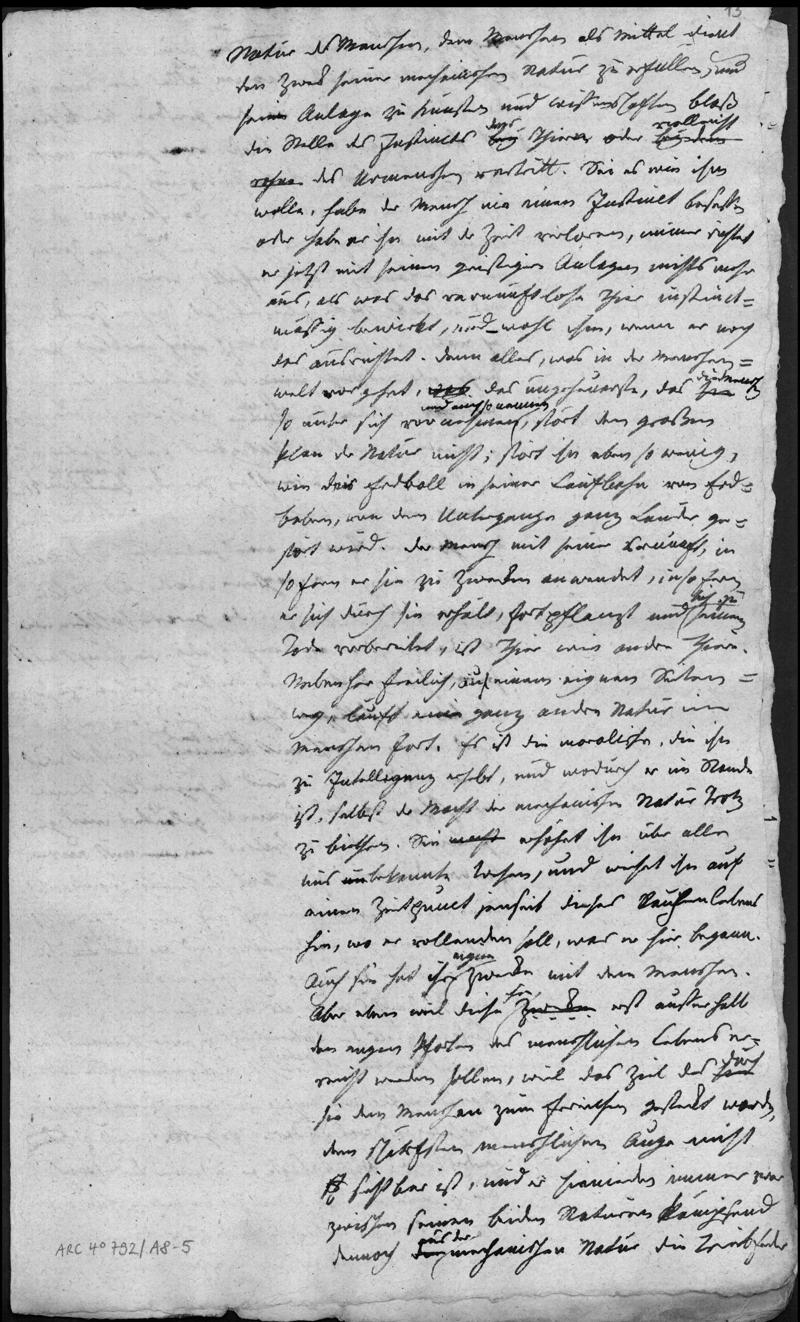 13
Natur des Menschen, dem Menschen als Mittel dient
den Zwek seiner mechanischen Natur zu erfüllen, und
seine Anlage zu Künsten und Wissenschaften bloß
die Stelle des Instincts des Thieres oder vielleicht
des Urmenschen vertritt. Sei es wie ihm
wolle, habe der Mensch nie einen Instinct besessen
oder habe er ihn mit der Zeit verloren, immer richtet
er jetzt mit seinen geistigen Anlagen nichts mehr
aus, als was das vernunftlose Thier instinct=
mässig bewirkt, und wohl ihm, wenn er noch
das ausrichtet. Denn alles, was in der Menschen=
welt vorgehet, das ungeheuerste, das die Mensch
so unter sich vornehmen, stört den großen
Plan der Natur nicht; stört ihn eben so wenig,
wie der Erdball in seiner Laufbahn von Erd=
beben, von dem Untergange ganzer Länder ge=
stört wird. Der Mensch mit seiner Vernunft, in
sofern er sie zu Zwecken anwendet, insofern
er sich durch sie erhält, fortpflanzt und sich zu seinem
Tode vorbereitet, ist Thier wie andre Thiere.
Nebenher freilich, auf einem eignen Seiten=
weg, läuft eine ganz andre Natur im
Menschen fort. Es ist die moralische, die ihn
zu Intelligenz erhebt, und wodurch er im Stande
ist, selbst der Macht der mechanischen Natur Trotz
zu biethen. Sie erhöhet ihn über alle
uns unbekannte Wesen, und weiset ihn auf
einen Zeitpunct jenseit dieses Lebens
hin, wo er vollenden soll, was er hier begann.
Auch sie hat ihre eignen Zwecke mit dem Menschen.
Aber eben weil diese erst ausserhalb
den engen Pforten des menschlichen Lebens er=
reicht werden sollen, weil das Ziel das durch
sie dem Menschen zum Erreichen gesteckt worden,
dem schärfsten menschlichen Auge nicht
sichtbar ist, und er hienieden immer
zwischen seinen beiden Naturen kämpfend
dennoch aus der mechanischen Natur die Triebfeder
ARC 4º 792/A8-5